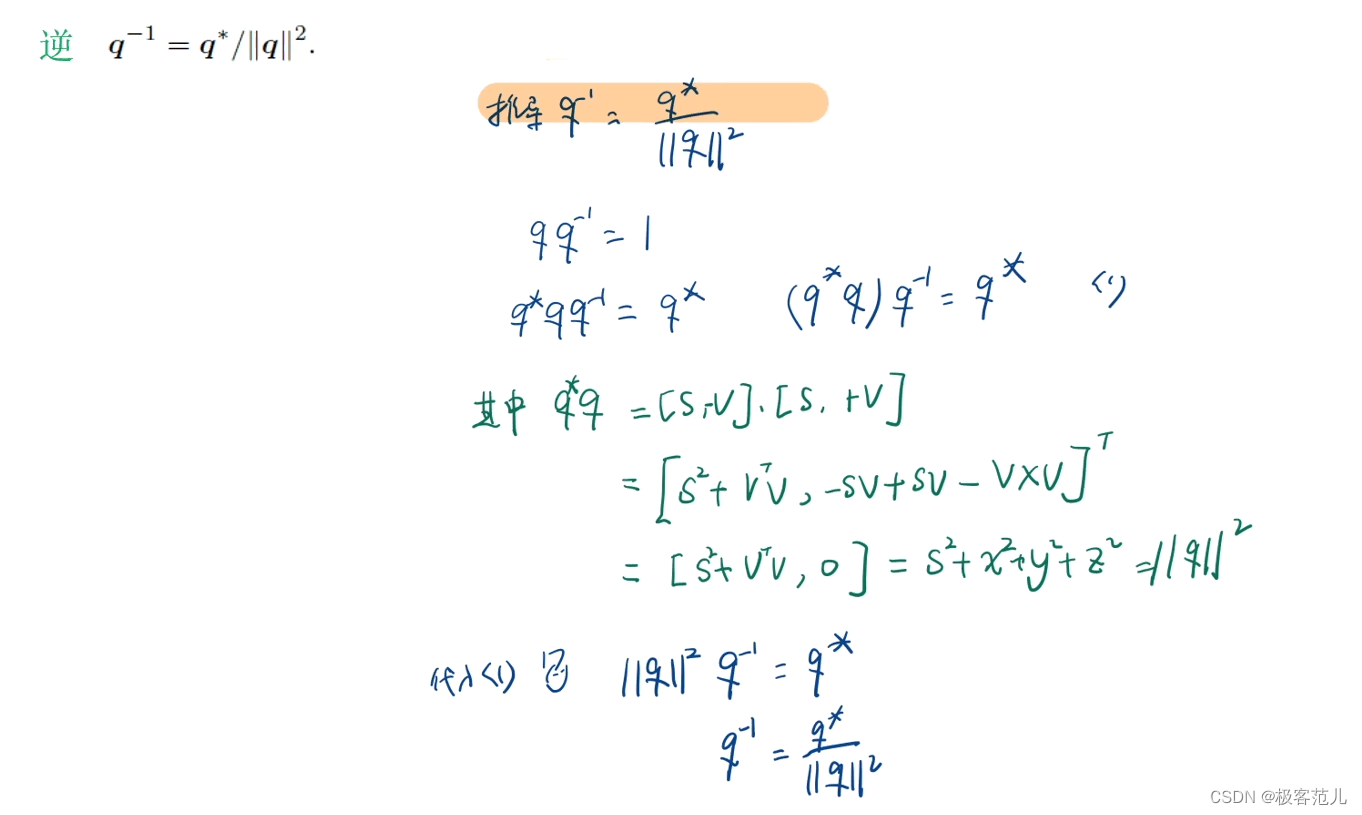 逆 q⁻¹ = q*/‖q‖².
推导 q⁻¹ = q* / ||q||²
q q⁻¹ = 1
q* q q⁻¹ = q* (q* q) q⁻¹ = q* <1>
其中 q* q = [S, -V] · [S, +V]
= [S² + VᵀV, -SV + SV - V×V]ᵀ
= [S² + VᵀV, 0] = S² + x² + y² + z² = ||q||²
代入<1> 得 ||q||² q⁻¹ = q*
q⁻¹ = q* / ||q||²
CSDN @极客范儿